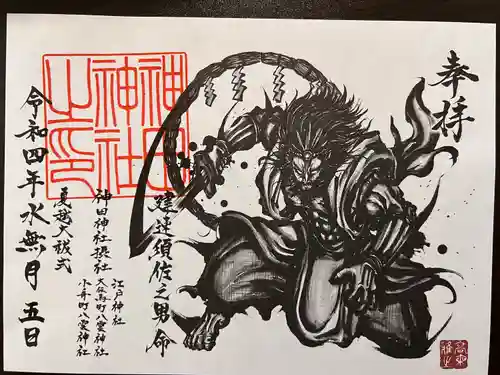 奉拝
建速須佐之男命
江戸神社
大伝馬町八雲神社
小舟町八雲神社
神田神社摂社
夏越大祓式
令和四年水無月五日
神田
神社
之印